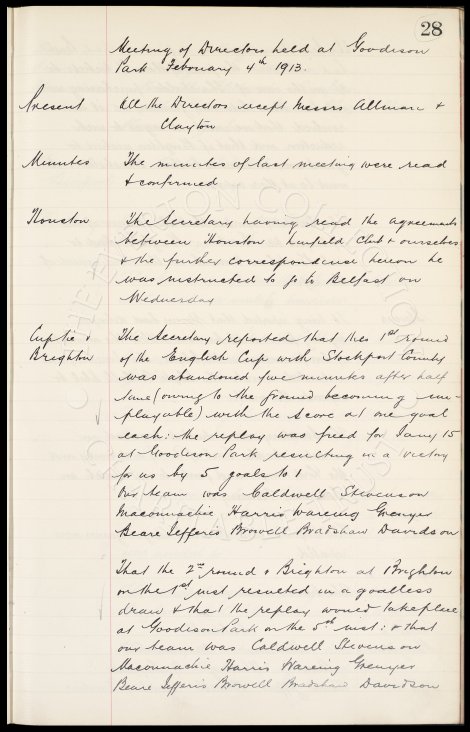 28
Meeting of Directors held at Goodison
Park February 4th 1913.
Present All the Directors except Messrs Allman &
Clayton
Minutes The minutes of last meeting were read
& confirmed
Houston The Secretary having read the agreements
between Houston Linfield Club & ourselves
& the further correspondence hereon he
was instructed to go to Belfast on
Wednesday
Cuptie v The Secretary reported that the 1st round
Brighton of the English Cup with Stockport County
was abandoned five minutes after half
time (owing to the ground becoming un-
playable) with the score at one goal
each: the replay was fixed for Jany 15
at Goodison Park resulting in a victory
for us by 5 goals to 1
Our team was Caldwell Stevenson
Macconnachie Harris Wareing Grenyer
Beare Jefferis Browell Bradshaw Davidson
That the 2nd round v Brighton at Brighton
on the 1st inst resulted in a goalless
draw & that the replay would take place
at Goodison Park on the 5th inst: & that
our team was Caldwell Stevenson
Macconnachie Harris Wareing Grenyer
Beare Jefferis Browell Bradshaw Davidson